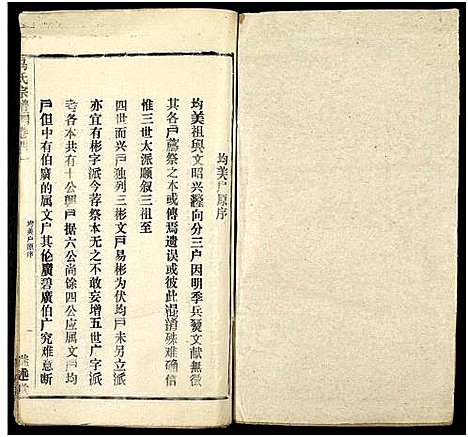 均美戶原序
均美祖與文昭兴瀅向分三户因明季兵燹文献無徵
其各戶薦祭之本或傅焉遺误或彼此混淆殊难确信
惟三世太派顺叙三祖至
四世而兴戶独列三彬文戶易彬为伏均戶未另立派
亦宜有彬字派今荐祭本无之不敢妄增五世广字派
各本共有十公興戶据六公高馀四公应属文戶均
戶但中有伯廣的属文户其伦廣碧廣伯广究难意断
氏宗譜
均美戶原序
一